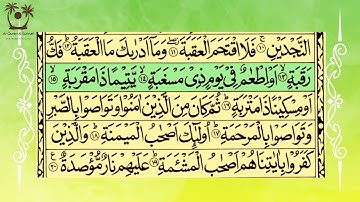 النَّجْدَيْنِ ۝١٠ فَلَا اقْتَحَمَ الْعَقَبَةَ ۝١١ وَمَا أَدْرٰىكَ مَا الْعَقَبَةُ ۝١٢ فَكُّ
رَقَبَةٍ ۝١٣ اَوْ اِطْعٰمٌ فِيْ يَوْمٍ ذِيْ مَسْغَبَةٍ ۝١٤ يَّتِيْمًا ذَا مَقْرَبَةٍ ۝١٥
اَوْ مِسْكِيْنًا ذَا مَتْرَبَةٍ ۝١٦ ثُمَّ كَانَ مِنَ الَّذِيْنَ اٰمَنُوْا وَتَوَاصَوْا بِالصَّبْرِ
وَتَوَاصَوْا بِالْمَرْحَمَةِ ۝١٧ اُولٰٓئِكَ اَصْحٰبُ الْمَيْمَنَةِ ۝١٨ وَالَّذِيْنَ
كَفَرُوْا بِاٰيٰتِنَا هُمْ اَصْحٰبُ الْمَشْـَٔمَةِ ۝١٩ عَلَيْهِمْ نَارٌ مُّؤْصَدَةٌ ۝٢٠